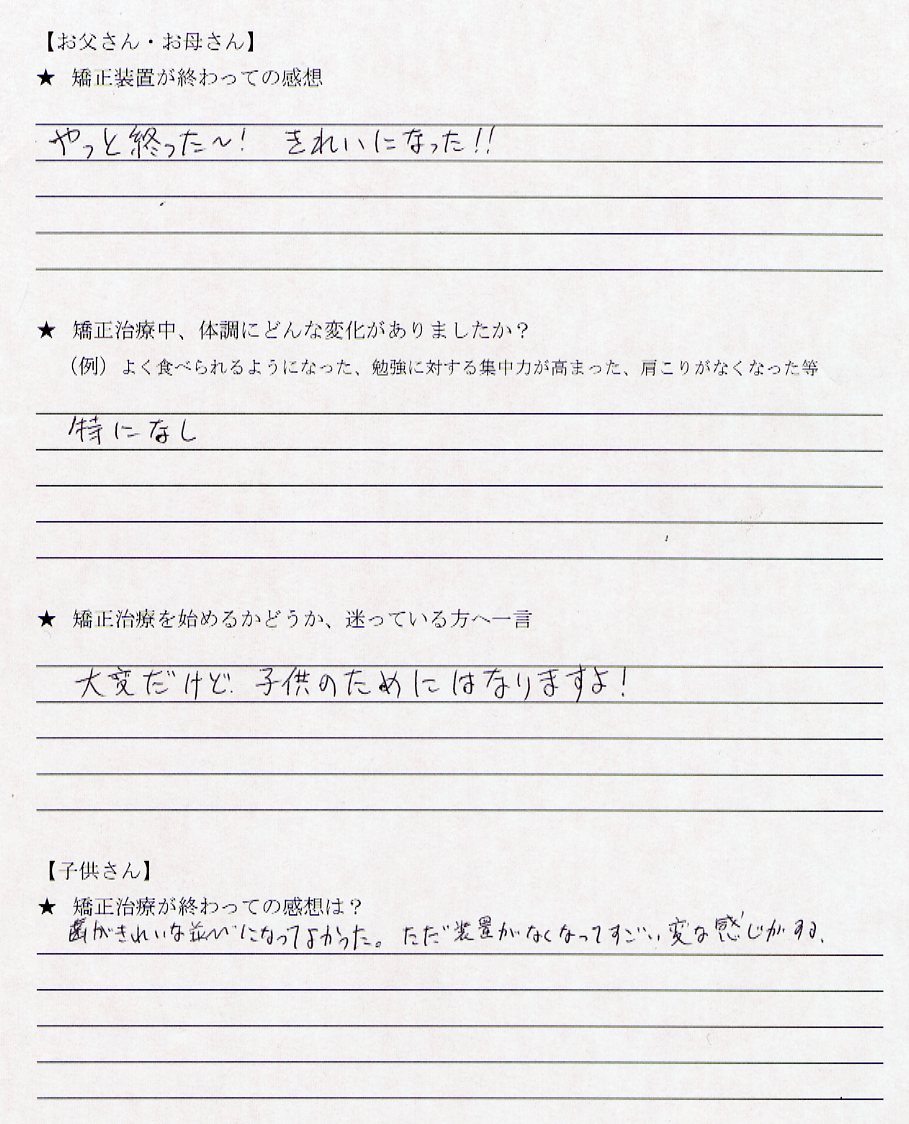 【お父さん・お母さん】
★ 矯正装置が終わっての感想
やっと終った～! きれいになった!!
★ 矯正治療中、体調にどんな変化がありましたか？
（例）よく食べられるようになった、勉強に対する集中力が高まった、肩こりがなくなった等
特になし
★ 矯正治療を始めるかどうか、迷っている方へ一言
大変だけど、子供のためにはなりますよ!
【子供さん】
★ 矯正治療が終わっての感想は？
歯がきれいな並びになってよかった。ただ装置がなくなってすごい変な感じがする、